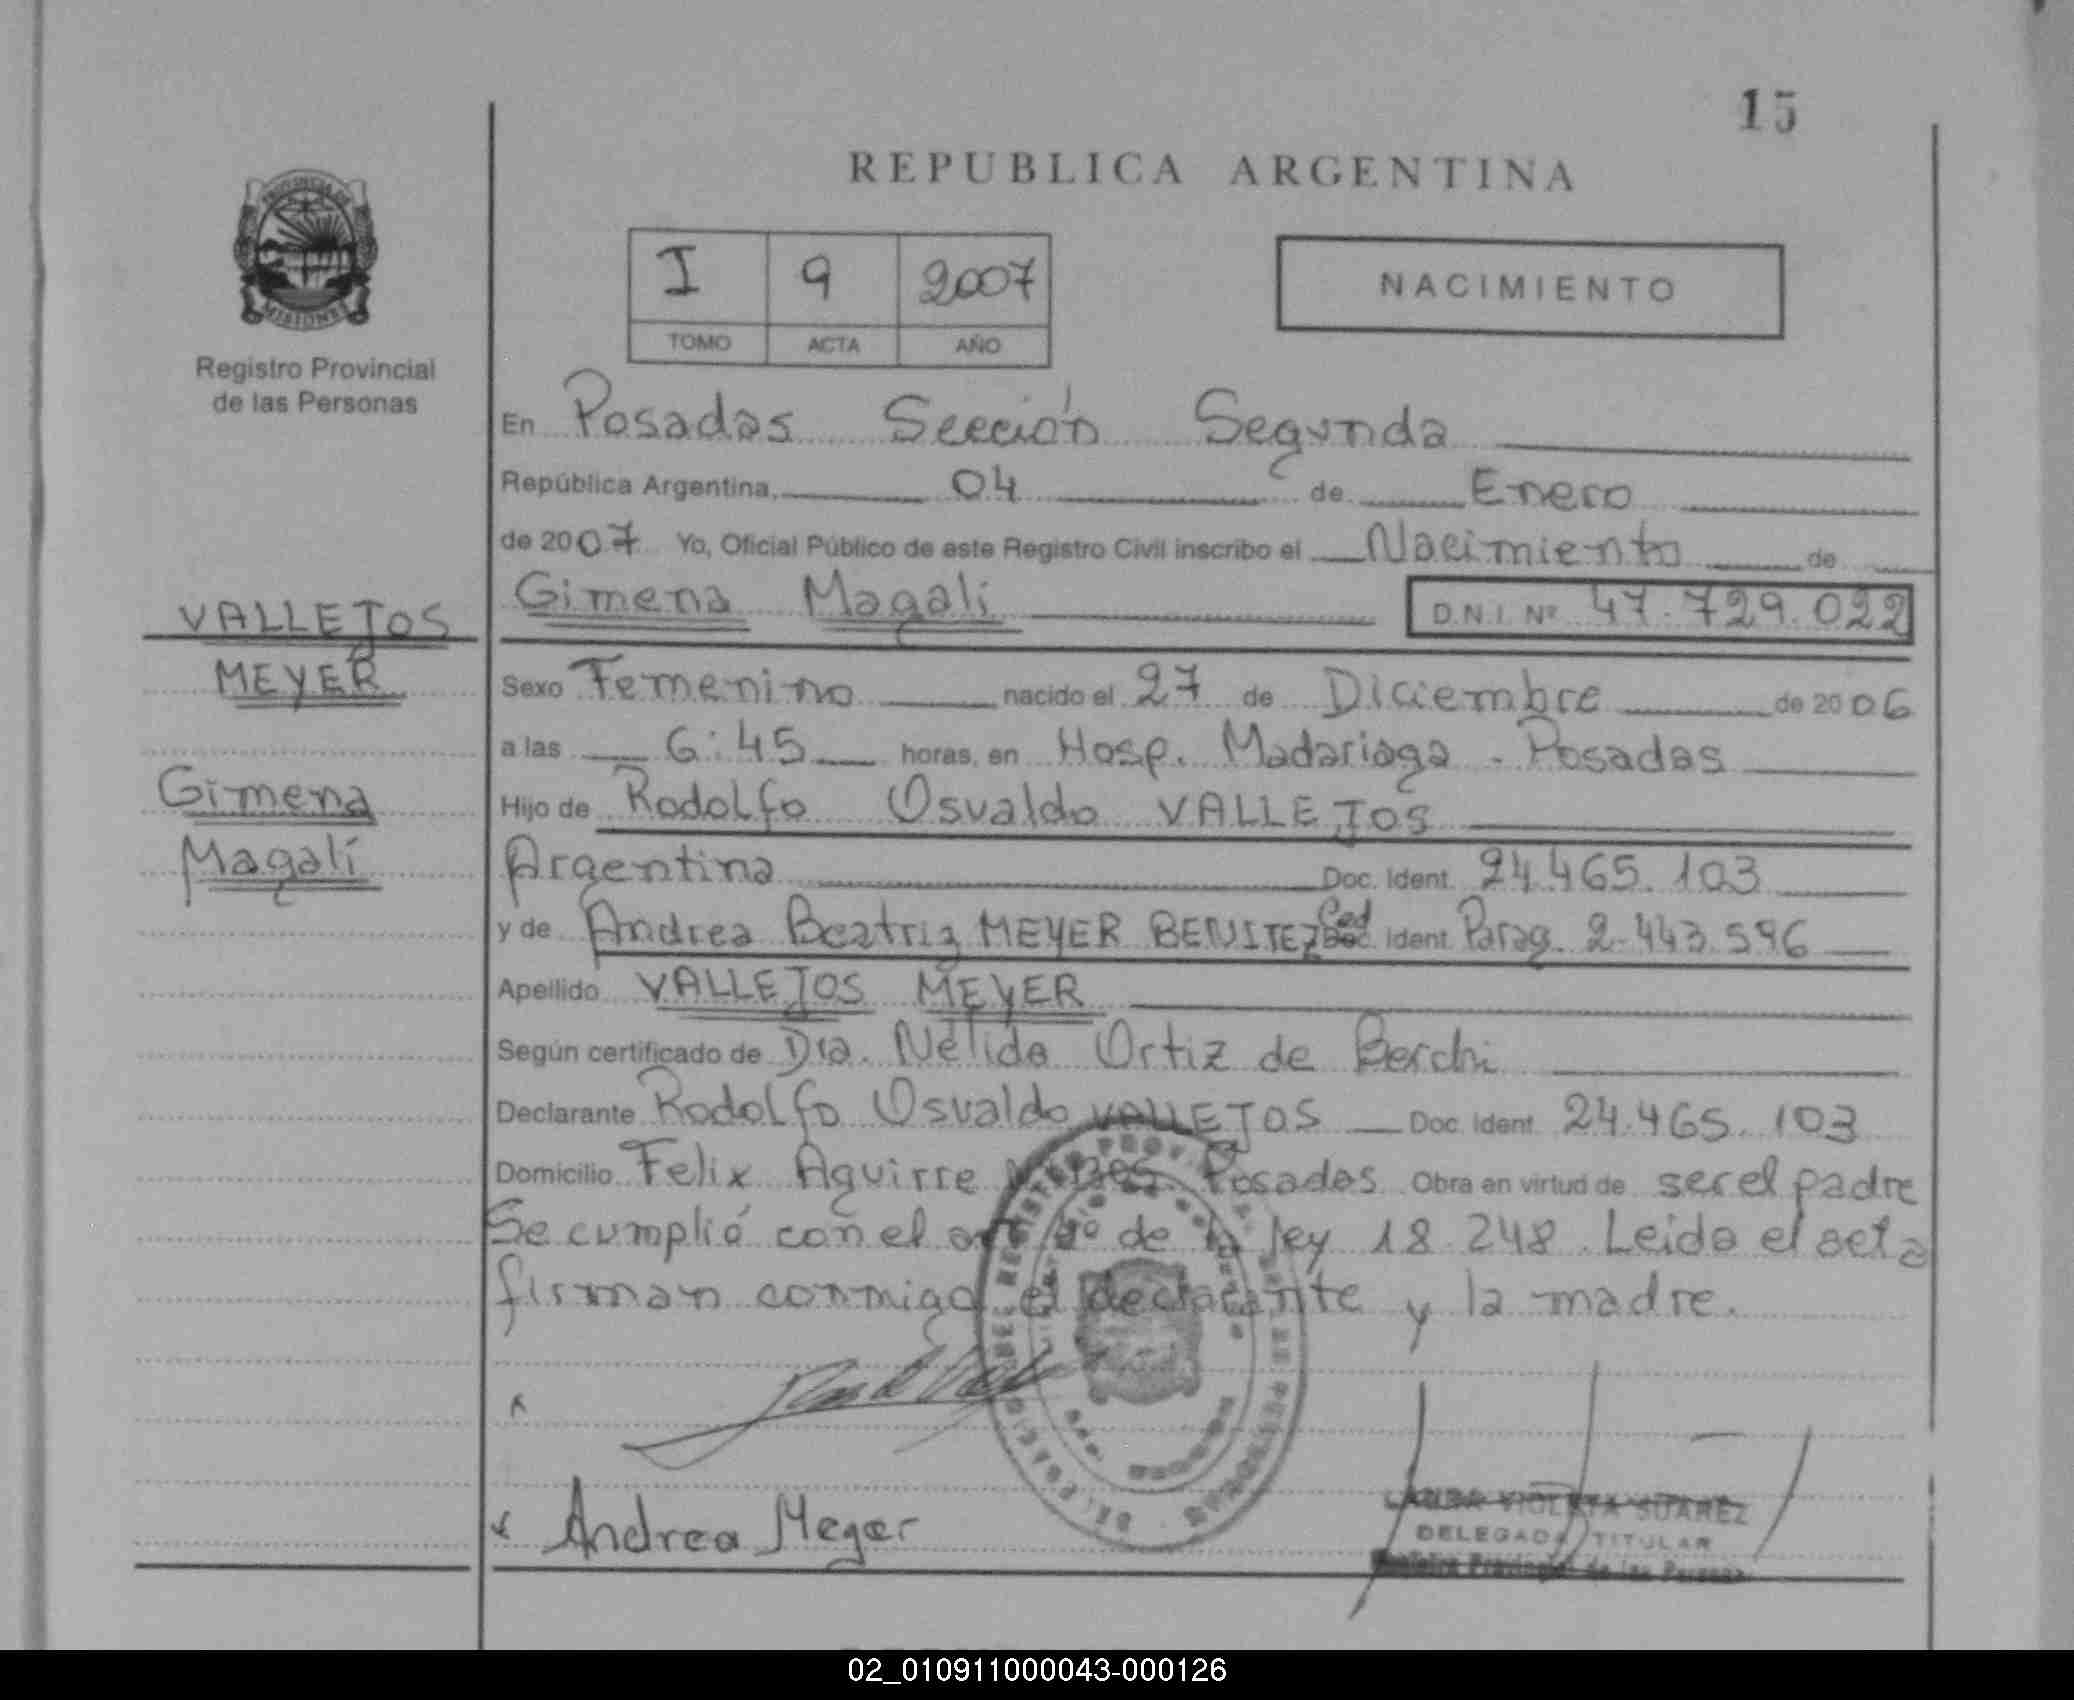 15
REPUBLICA ARGENTINA
PROVINCIA DE
MISIONES
Registro Provincial
de las Personas
I 9 2007
TOMO ACTA AÑO
NACIMIENTO
En Posadas Sección Segunda
República Argentina, 04 de Enero
de 2007 Yo, Oficial Público de este Registro Civil inscribo el Nacimiento de
Gimena Magalí D.N.I. Nº 47.729.022
VALLEJOS
MEYER
Gimena
Magalí
Sexo Femenino nacido el 27 de Diciembre de 2006
a las 6:45 horas, en Hosp. Madariaga - Posadas
Hijo de Rodolfo Osvaldo VALLEJOS
Argentina Doc. Ident. 24.465.103
y de Andrea Beatriz MEYER BENITEZ Ced Doc. Ident. Parag. 2.443.596
Apellido VALLEJOS MEYER
Según certificado de Dra. Nélida Ortiz de Berchi
Declarante Rodolfo Osvaldo VALLEJOS Doc. Ident. 24.465.103
Domicilio Felix Aguirre Posadas Obra en virtud de ser el padre
Se cumplió con el art de la ley 18.248. Leida el acta
firman conmigo el declarante y la madre.
Andrea Meyer
VIOLETA SUAREZ
DELEGADA TITULAR
Registro Provincial de las Personas
02_010911000043-000126